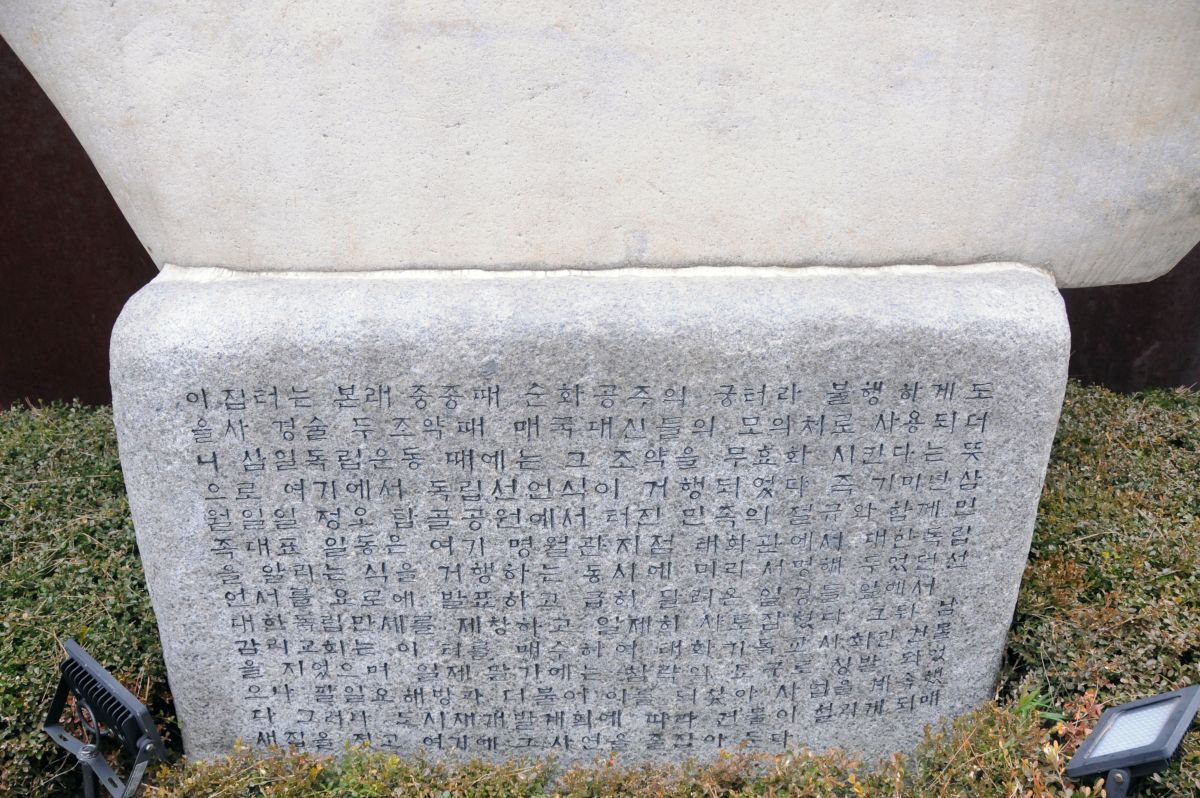 이 집터는 본래 중종때 순화공주의 궁터라 불행하게도
을사 경술 두 조약때 매국대신들의 모의처로 사용되더
니 삼일독립운동 때에는 그 조약을 무효화 시킨다는 뜻
으로 여기에서 독립선언식이 거행되었다 즉 기미년 삼
월일일 정오 탑골공원에서 터진 민족의 절규와 함께 민
족대표 일동은 여기 명월관지점 태화관에서 대한독립
을 알리는 식을 거행하는 동시에 미리 서명해 두었던 선
언서를 요로에 발표하고 급히 달려온 일경들 앞에서
대한독립만세를 제창하고 일제히 사로잡혔다 그뒤 남
감리교회는 이 터를 매수하여 태화기독교사회관 건물
을 지었으며 일제 말기에는 침략의 도구로 징발 되었
으나 팔일오 해방과 더불어 이를 되찾아 사업을 계속했
다 그러다 도시재개발계획에 따라 건물이 헐리게 되매
새집을 짓고 여기에 그 사연을 줄잡아 둔다